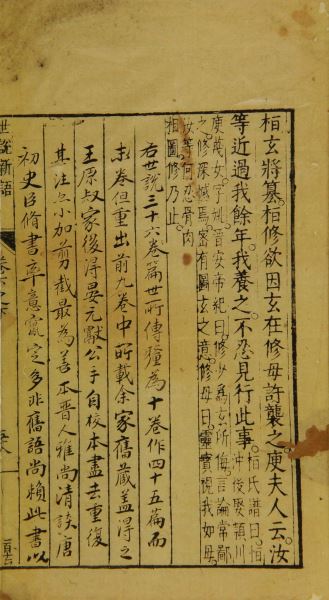 桓玄將篡桓修欲因玄在修母許襲之庾夫人云汝
等近過我餘年我養之不忍見行此事桓氏譜曰桓
沖後娶潁川
庾蔑女字姚晉安帝紀曰修少為玄所侮言論常鄙
之修深憾焉密有圖玄之意修母曰靈寶視我如母
汝等何忍骨肉
相圖修乃止
右世說三十六卷篇世所傳釐為十卷作四十五篇而
末卷但重出前九卷中所載余家舊藏蓋得之
王原叔家後得晏元獻公手自校本盡去重復
其注亦小加剪截最為善本晉人雅尚清談唐
初史臣脩書率意竄定多非舊語尚賴此書以
世說新語